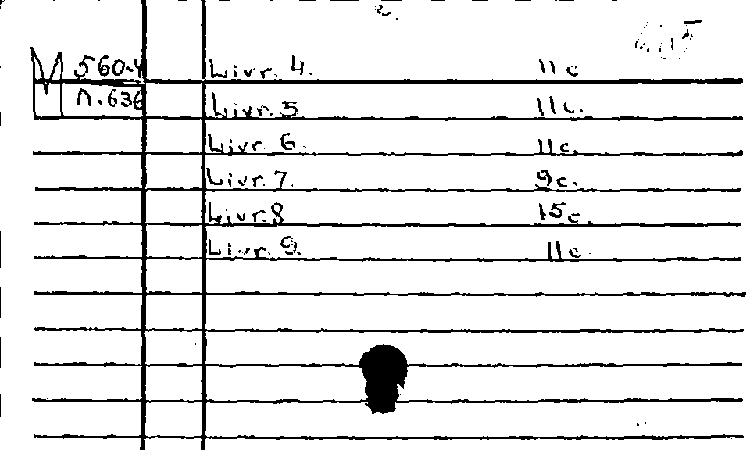 2.
M 560-4 Livr. 4. 11 c
n. 636 Livr. 5 11 c.
Livr. 6. 11 c.
Livr. 7. 9 c.
Livr. 8 15 c.
Livr. 9. 11 c.